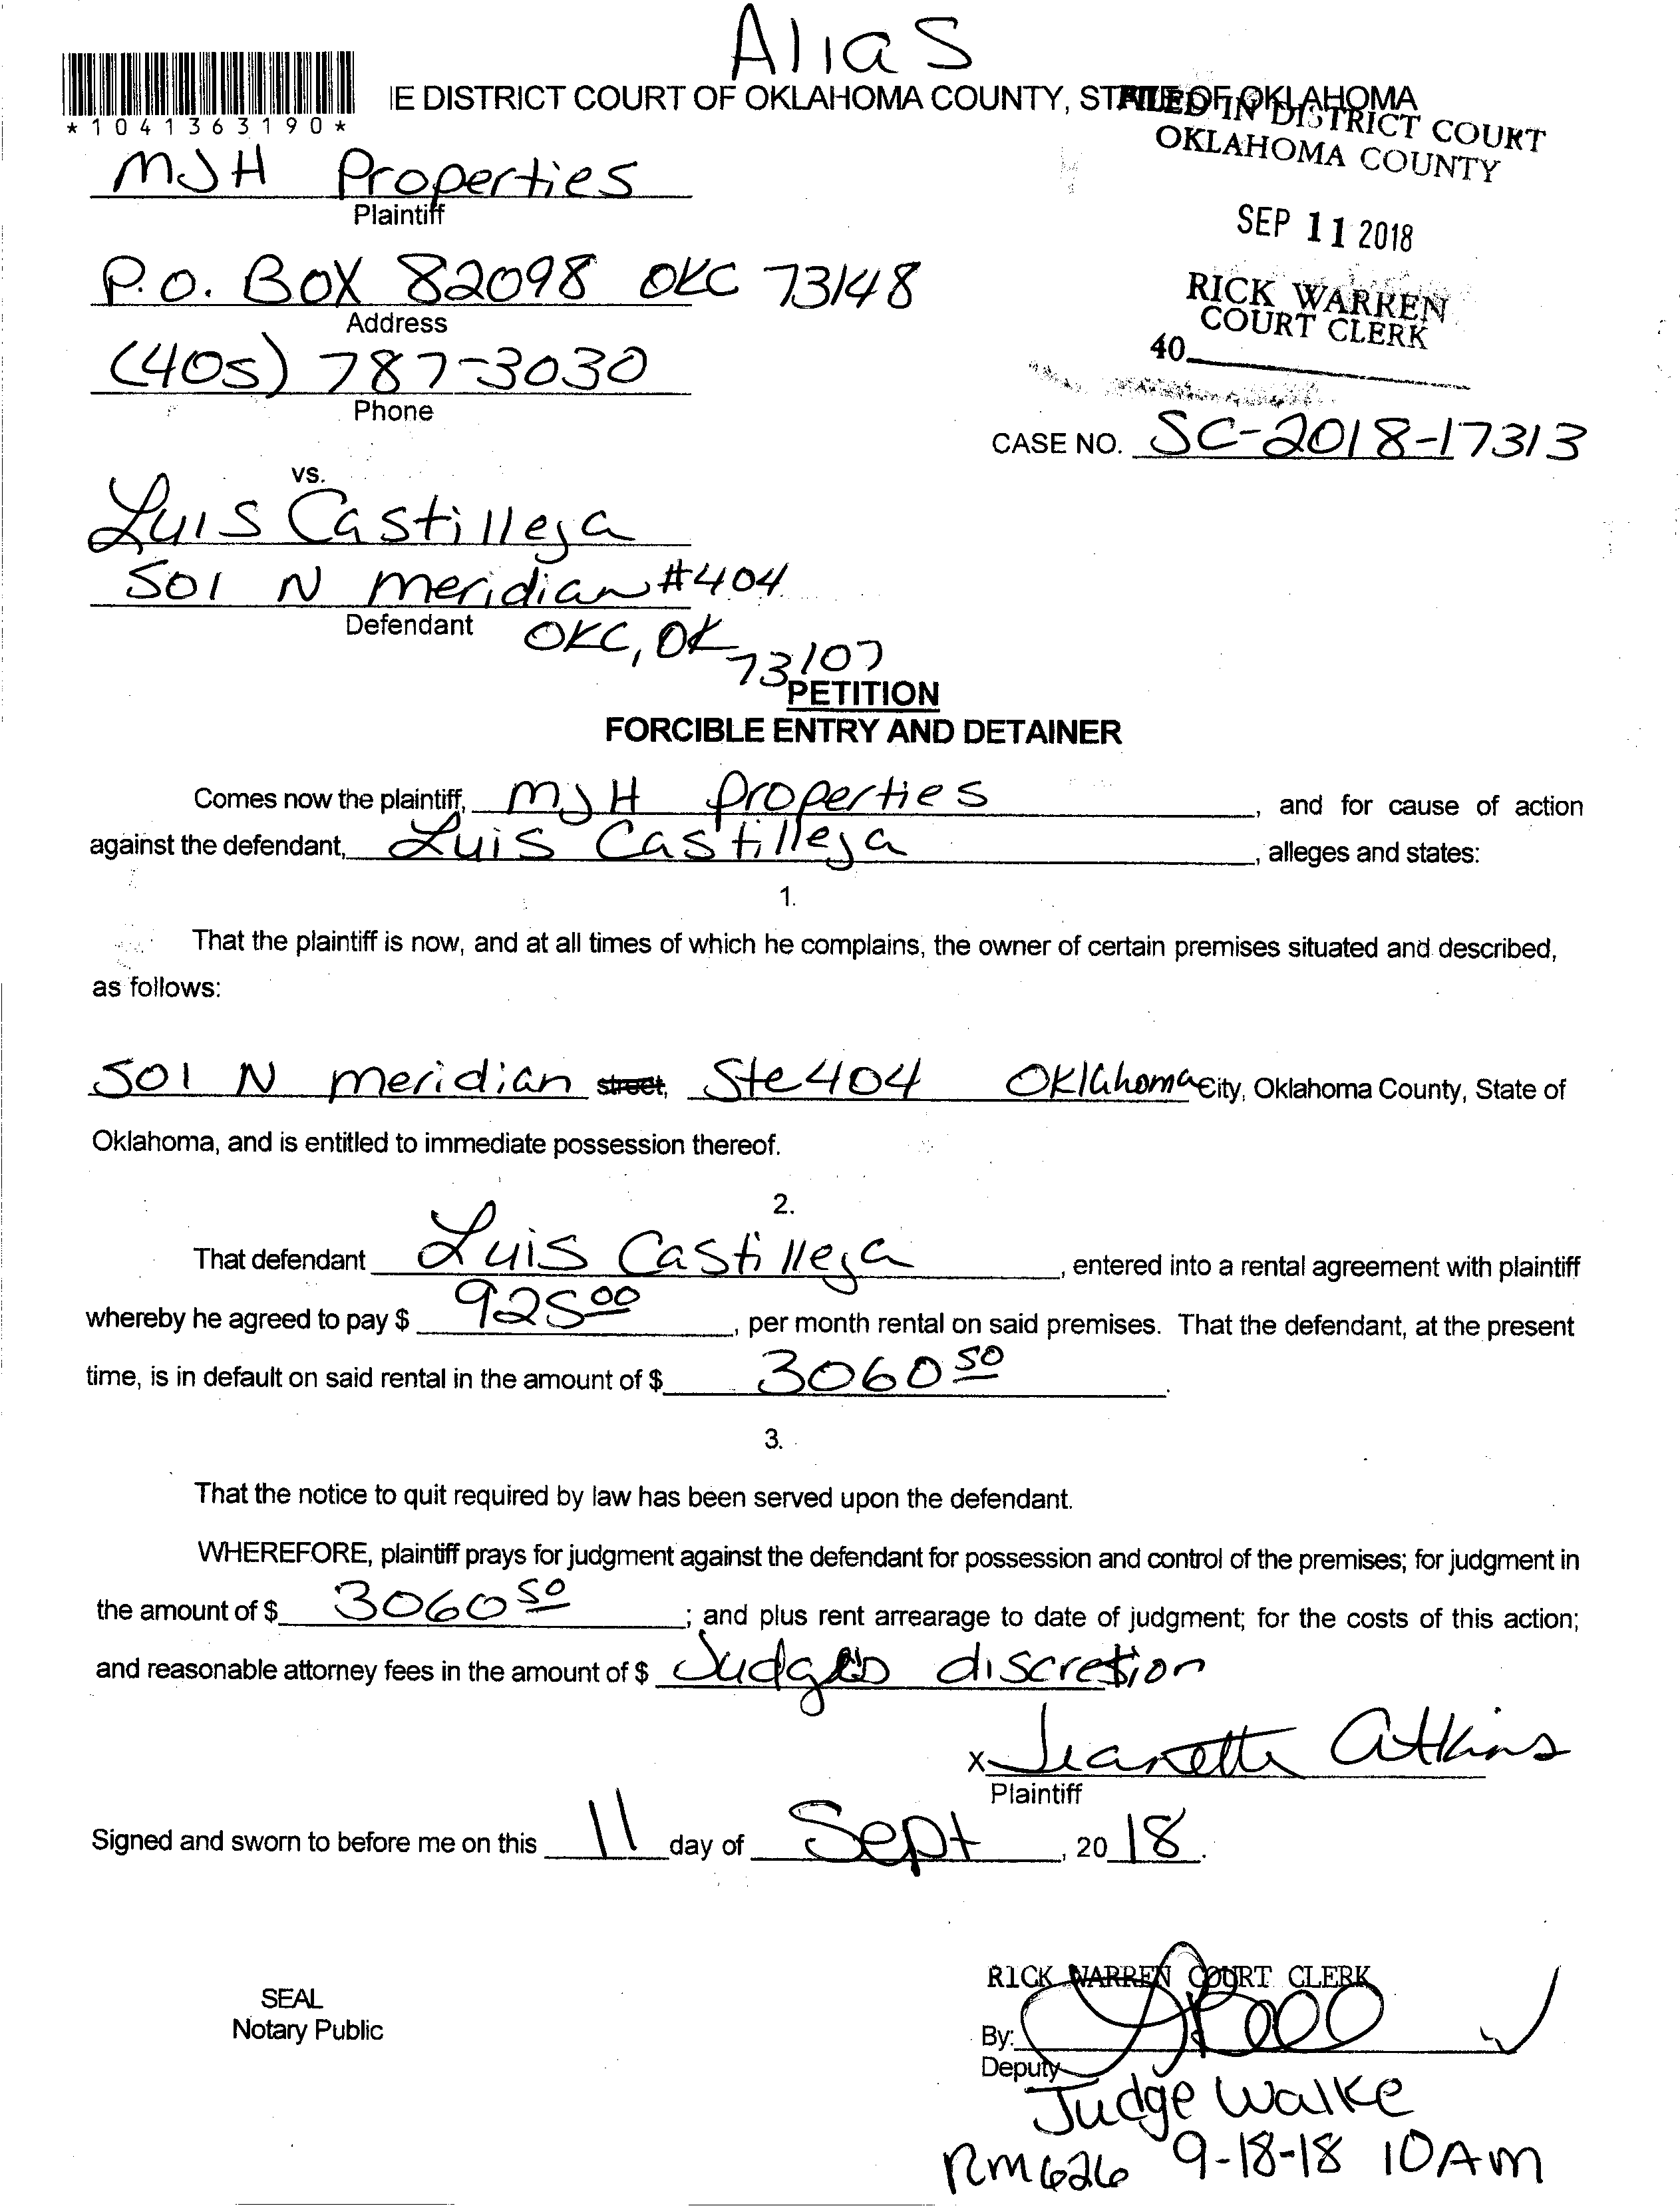 Alias
IE DISTRICT COURT OF OKLAHOMA COUNTY, STATE OF OKLAHOMA
*1041363190*
FILED IN DISTRICT COURT
OKLAHOMA COUNTY
MJH Properties
Plaintiff
SEP 11 2018
P.O. BOX 82098 OKC 73148
Address
RICK WARREN
COURT CLERK
40
(405) 787-3030
Phone
CASE NO. SC-2018-17313
vs.
Luis Castilleja
501 N meridian #404
Defendant
OKC, OK 73107
PETITION
FORCIBLE ENTRY AND DETAINER
Comes now the plaintiff, MJH Properties, and for cause of action
against the defendant, Luis Castilleja, alleges and states:
1.
That the plaintiff is now, and at all times of which he complains, the owner of certain premises situated and described,
as follows:
501 N meridian street, Ste 404 Oklahoma City, Oklahoma County, State of
Oklahoma, and is entitled to immediate possession thereof.
2.
That defendant Luis Castilleja, entered into a rental agreement with plaintiff
whereby he agreed to pay $ 925 00, per month rental on said premises. That the defendant, at the present
time, is in default on said rental in the amount of $ 3060 50.
3.
That the notice to quit required by law has been served upon the defendant.
WHEREFORE, plaintiff prays for judgment against the defendant for possession and control of the premises; for judgment in
the amount of $ 3060 50; and plus rent arrearage to date of judgment; for the costs of this action;
and reasonable attorney fees in the amount of $ Judges discretion
x Jeanette Atkins
Plaintiff
Signed and sworn to before me on this 11 day of Sept, 20 18.
RICK WARREN COURT CLERK
SEAL
Notary Public
By:
Deputy
Judge Walke
RM 626 9-18-18 10AM